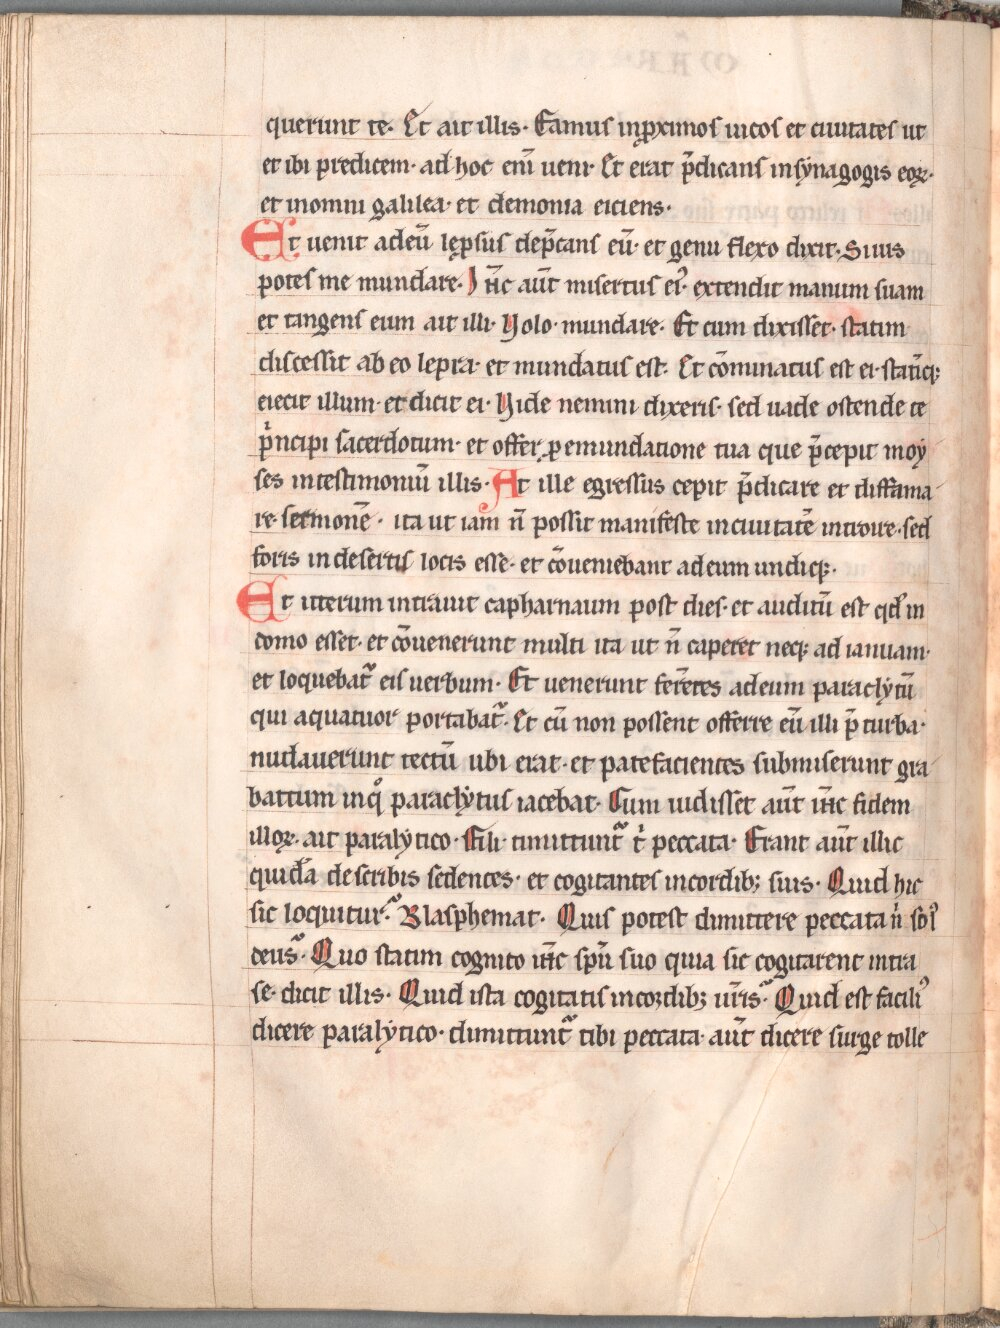 querunt te· Et ait illis· Eamus inp̱ximos uicos et ciuitates ut
et ibi predicem· ad hoc eni̅ ueni· Et erat p̅dicans in synagogis eoꝝ·
et in omni galilea· et demonia eiciens·
Et uenit ad eu̅ lępsus dep̅cans eu̅· et genu flexo dixit· Si uis
potes me mundare· Ih̅c aut̅ misertus ei᾿ extendit manum suam
et tangens eum ait illi· Uolo· mundare· Et cum dixisset· statim
discessit ab eo lepra· et mundatus est· Et co̅minatus est ei· stati̅qꝫ
eiecit illum· et dicit ei· Uide nemini dixeris· sed uade ostende te
p̍ncipi sacerdotum· et offer ꝓ emundatione tua que p̅cepit moy
ses in testimoniu̅ illis· At ille egressus cepit p̅dicare et diffama
re sermone̅· ita ut iam n̅ possit manifeste in ciuitate̅ introire· sed
foris in desertis locis esse· et co̅ueniebant ad eum undiqꝫ·
Et iterum intrauit capharnaum post dies· et auditu̅ est qd̅ in
domo esset· et co̅uenerunt multi ita ut n̅ caperet neqꝫ ad ianuam·
et loquebat᷑ eis uerbum· Et uenerunt fere̅tes ad eum paraclytu̅
qui a quatuor portabat᷑· Et cu̅ non possent offerre eu̅ illi p̅ turba·
nudauerunt tectu̅ ubi erat· et patefacientes submiserunt gra
battum in qͦ paraclytus iacebat· Cum uidisset aut̅ ih̅c fidem
illoꝝ· ait paralytico· Fili· timittunt᷑ t̍ peccata· Erant aut̅ illic
quida̅ de scribis sedentes· et cogitantes in cordibꝫ suis· Quid hic
sic loquitur? Blasphemat· Quis potest dimittere peccata n̍ sol᾿
deus? Quo statim cognito ih̅c sp̅u suo quia sic cogitarent intra
se· dicit illis· Quid ista cogitatis in cordibꝫ ur̅is? Quid est facili᾿
dicere paralytico· dimittunt᷑ tibi peccata· aut̅ dicere surge tolle